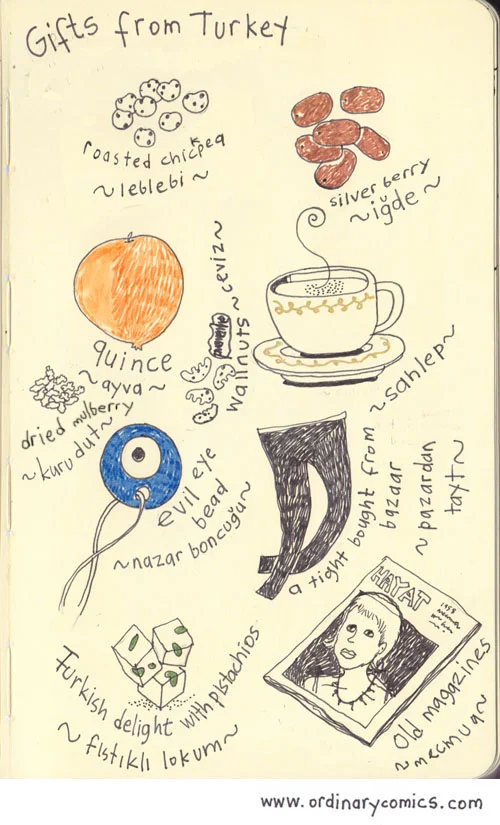 Gifts from Turkey
roasted chickpea
~ leblebi ~
silver berry
~ iğde ~
quince
~ ayva ~
wallnuts ~ ceviz ~
~ sahlep ~
dried mulberry
~ kuru dut ~
evil eye
bead
~ nazar boncuğu ~
a tight bought from
bazaar
~ pazardan
tayt ~
HAYAT
1958
Turkish delight with pistachios
~ fıstıklı lokum ~
Old magazines
~ mecmua ~
www.ordinarycomics.com